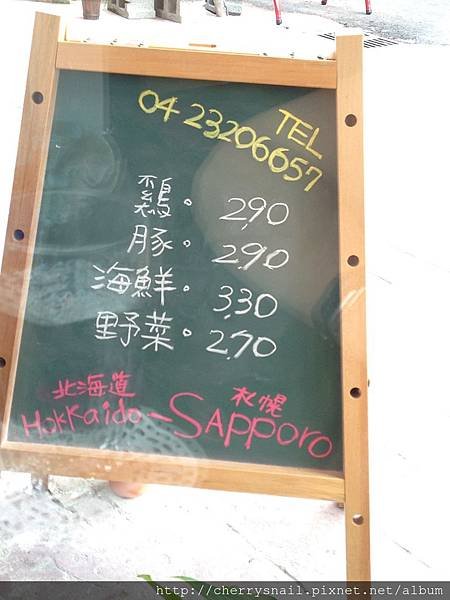 TEL
04 23206657
鶏。 290
豚。 290
海鮮。 330
野菜。 270
北海道 札幌
Hokkaido-SAPPORO
http://cherrysnail.pixnet.net/album